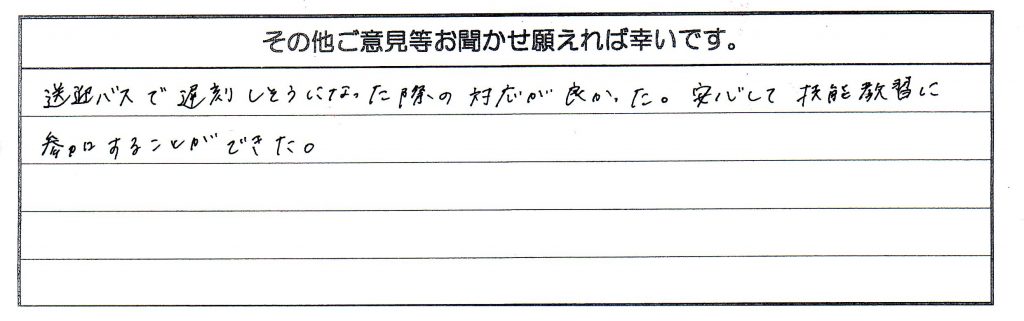 その他ご意見等お聞かせ願えれば幸いです。
送迎バスで遅刻しそうになった際の対応が良かった。安心して技能教習に
参加することができた。